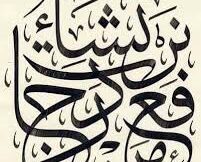 نرفع درجات من نشاء